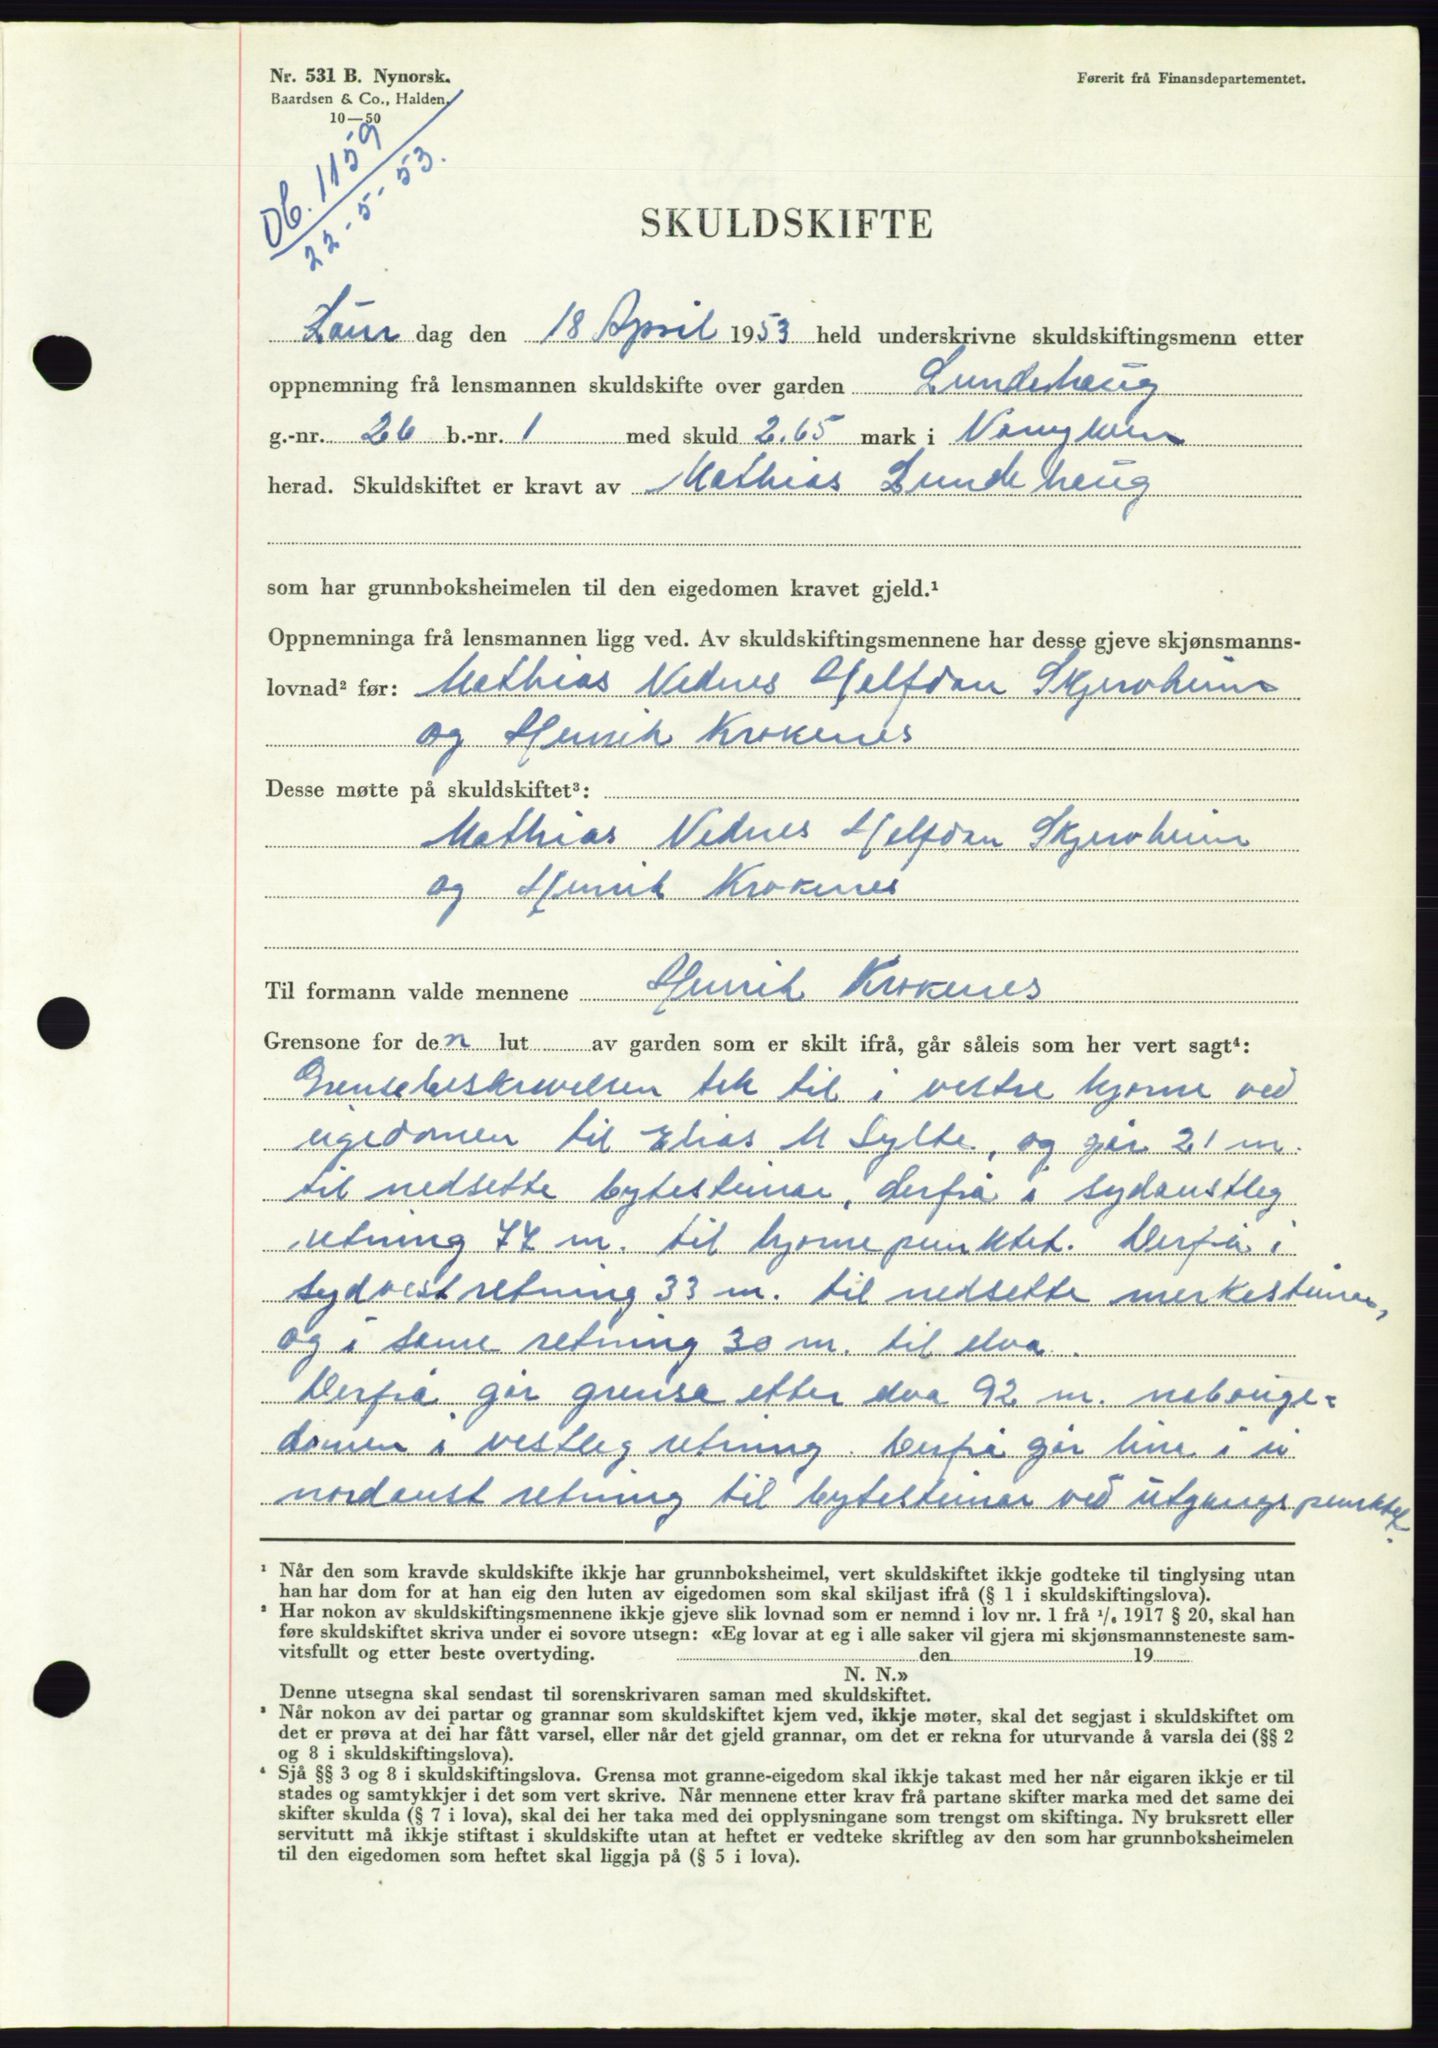 Nr. 531 B. Nynorsk.
Baardsen & Co., Halden.
10—50
Førerit frå Finansdepartementet.
Db. 1159
22-5-53.
SKULDSKIFTE
Laur dag den 18 April 1953 held underskrivne skuldskiftingsmenn etter
oppnemning frå lensmannen skuldskifte over garden Lundehaug
g.-nr. 26 b.-nr. 1 med skuld 2,65 mark i
herad. Skuldskiftet er kravt av Mathias Lundehaug
som har grunnboksheimelen til den eigedomen kravet gjeld.¹
Oppnemninga frå lensmannen ligg ved. Av skuldskiftingsmennene har desse gjeve skjønsmanns-
lovnad² før: Mathias Nednes Halfdan Skjervheim
og Henrik Krokenes
Desse møtte på skuldskiftet³:
Mathias Nednes Halfdan Skjervheim
og Henrik Krokenes
Til formann valde mennene Henrik Krokenes
Grensone for den lut av garden som er skilt ifrå, går såleis som her vert sagt⁴:
Grensebeskrivelsen tek til i vestre hjorne ved
eigedomen til Elias M Sylte, og går 21 m.
til nedsette bytesteinar, derfrå i sydaustleg
retning 77 m. til hjornepunktet. Derfrå i
sydvest retning 33 m. til nedsette merkesteinar,
og i same retning 30 m. til elva.
Derfrå går grensa etter elva 92 m. naboeige-
domen i vestleg retning. Derfrå går line i ei
nordaust retning til bytesteinar ved utgangspunktet.
¹ Når den som kravde skuldskifte ikkje har grunnboksheimel, vert skuldskiftet ikkje godteke til tinglysing utan
han har dom for at han eig den luten av eigedomen som skal skiljast ifrå (§ 1 i skuldskiftingslova).
² Har nokon av skuldskiftingsmennene ikkje gjeve slik lovnad som er nemnd i lov nr. 1 frå ¹/₆ 1917 § 20, skal han
føre skuldskiftet skriva under ei sovore utsegn: «Eg lovar at eg i alle saker vil gjera mi skjønsmannsteneste sam-
vitsfullt og etter beste overtyding. den 19
N. N.»
Denne utsegna skal sendast til sorenskrivaren saman med skuldskiftet.
³ Når nokon av dei partar og grannar som skuldskiftet kjem ved, ikkje møter, skal det segjast i skuldskiftet om
det er prøva at dei har fått varsel, eller når det gjeld grannar, om det er rekna for uturvande å varsla dei (§§ 2
og 8 i skuldskiftingslova).
⁴ Sjå §§ 3 og 8 i skuldskiftingslova. Grensa mot granne-eigedom skal ikkje takast med her når eigaren ikkje er til
stades og samtykkjer i det som vert skrive. Når mennene etter krav frå partane skifter marka med det same dei
skifter skulda (§ 7 i lova), skal dei her taka med dei opplysningane som trengst om skiftinga. Ny bruksrett eller
servitutt må ikkje stiftast i skuldskifte utan at heftet er vedteke skriftleg av den som har grunnboksheimelen
til den eigedomen som heftet skal liggja på (§ 5 i lova).